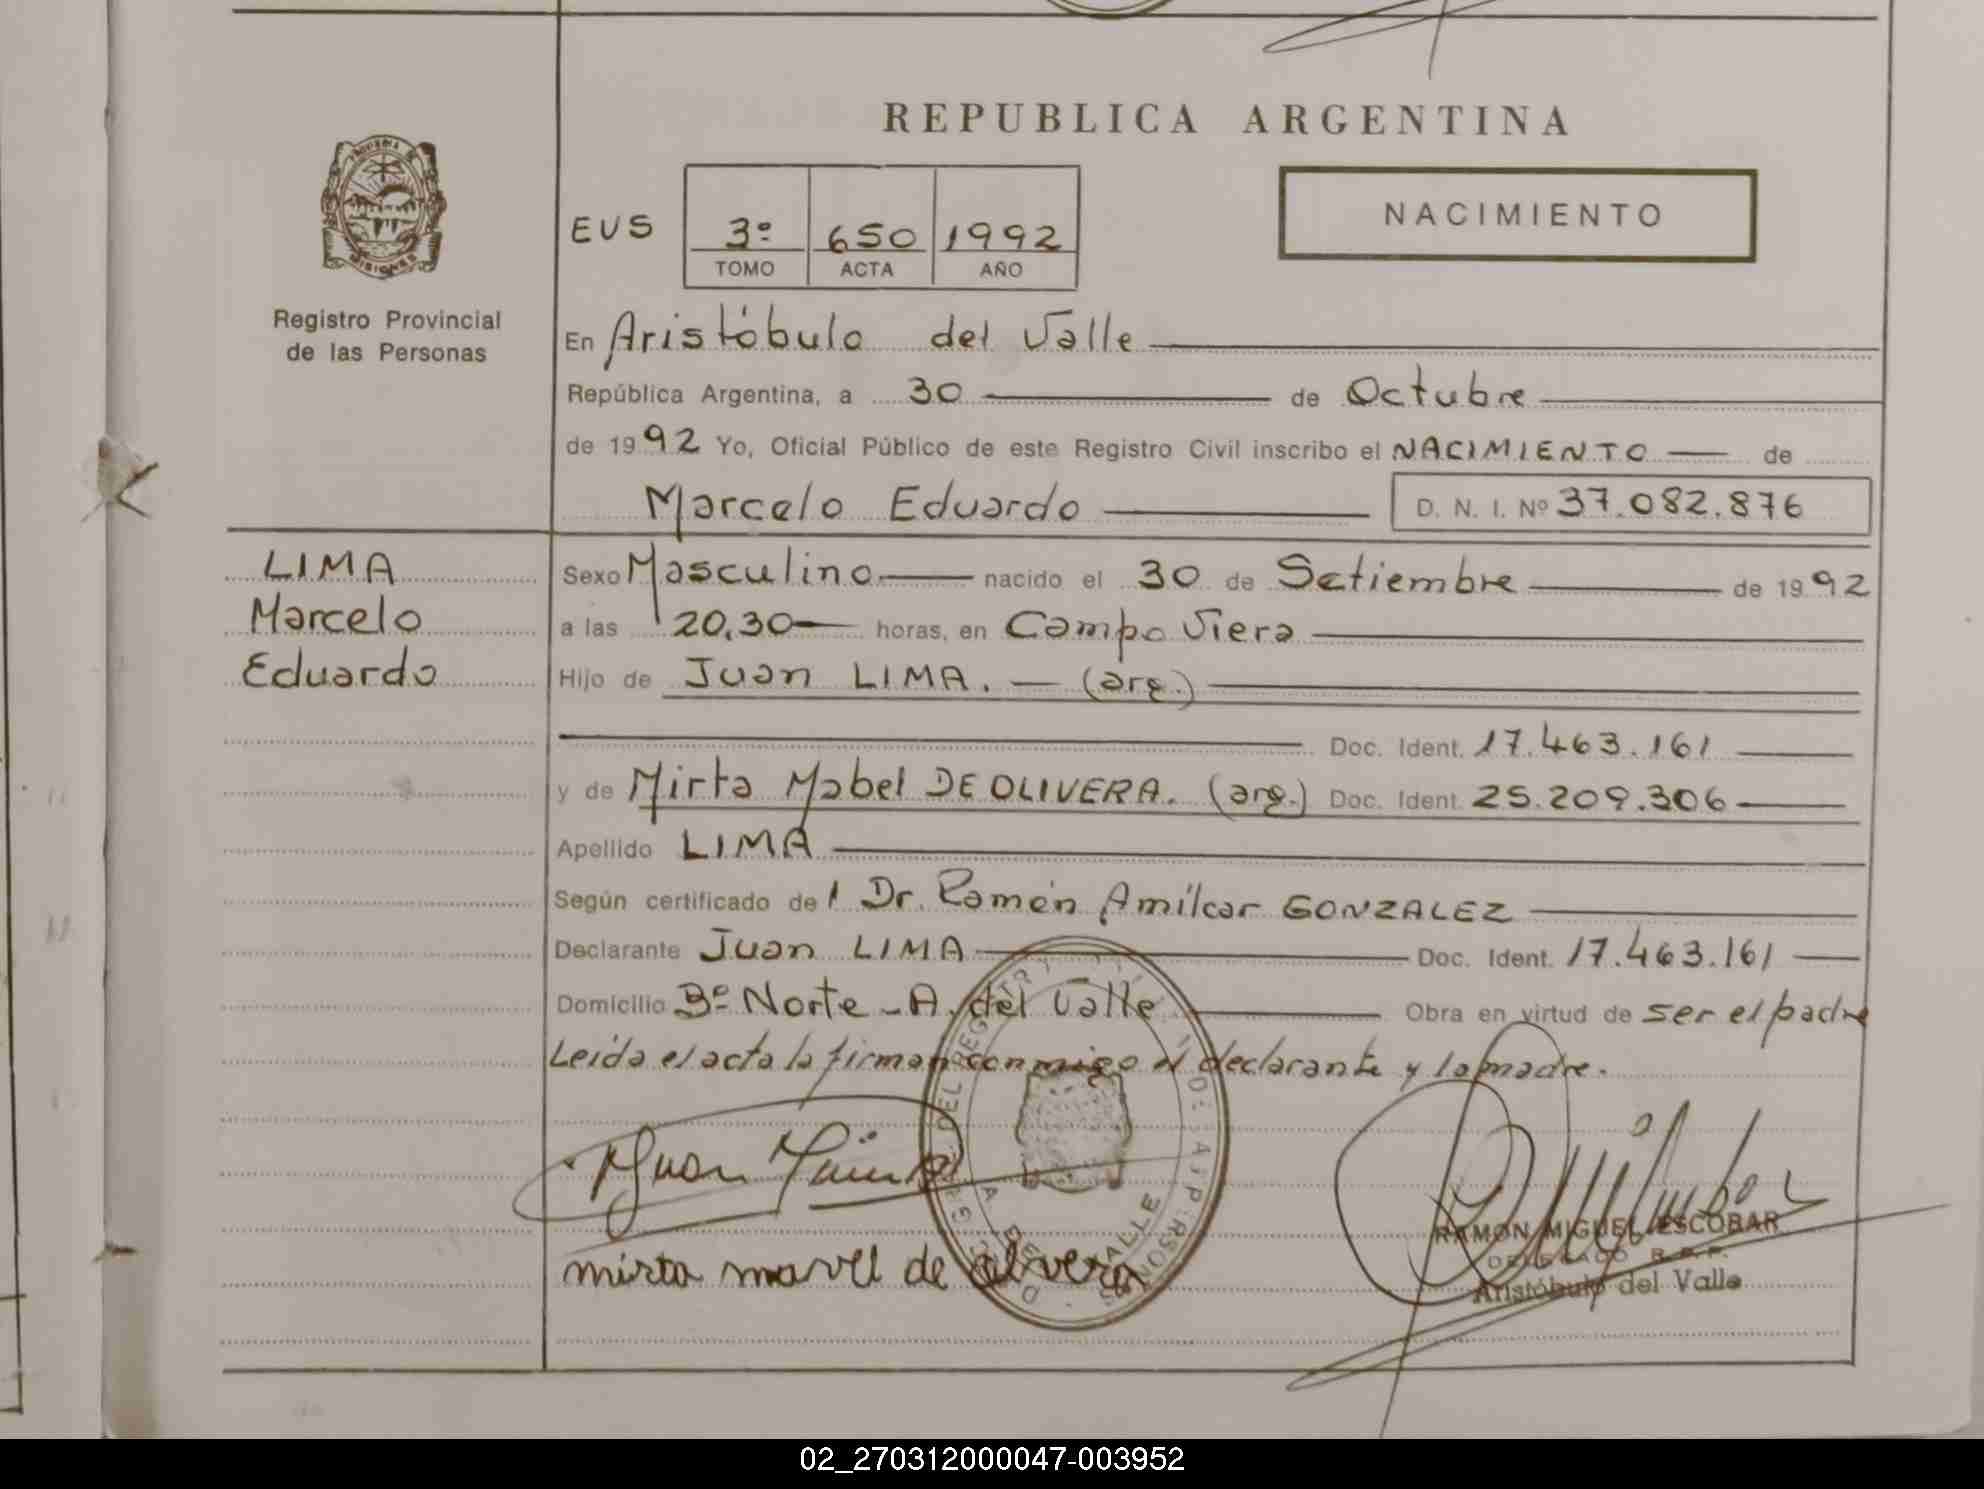 REPUBLICA ARGENTINA
PROVINCIA DE
MISIONES
Registro Provincial
de las Personas
EUS
3º 650 1992
TOMO ACTA AÑO
NACIMIENTO
En Aristóbulo del Valle
República Argentina, a 30 de Octubre
de 1992 Yo, Oficial Público de este Registro Civil inscribo el NACIMIENTO de
Marcelo Eduardo D. N. I. Nº 37.082.876
LIMA
Marcelo
Eduardo
Sexo Masculino nacido el 30 de Setiembre de 1992
a las 20,30 horas, en Campo Viera
Hijo de Juan LIMA. (arg.)
Doc. Ident. 17.463.161
y de Mirta Mabel DE OLIVERA. (arg.) Doc. Ident. 25.209.306
Apellido LIMA
Según certificado del Dr. Ramón Amílcar GONZALEZ
Declarante Juan LIMA Doc. Ident. 17.463.161
Domicilio Bº Norte - A. del Valle Obra en virtud de ser el padre
Leída el acta la firman conmigo el declarante y la madre.
Juan Lima
mirta mavel de olivera
RAMON MIGUEL ESCOBAR
DELEGADO R.P.P.
Aristóbulo del Valle
02_270312000047-003952